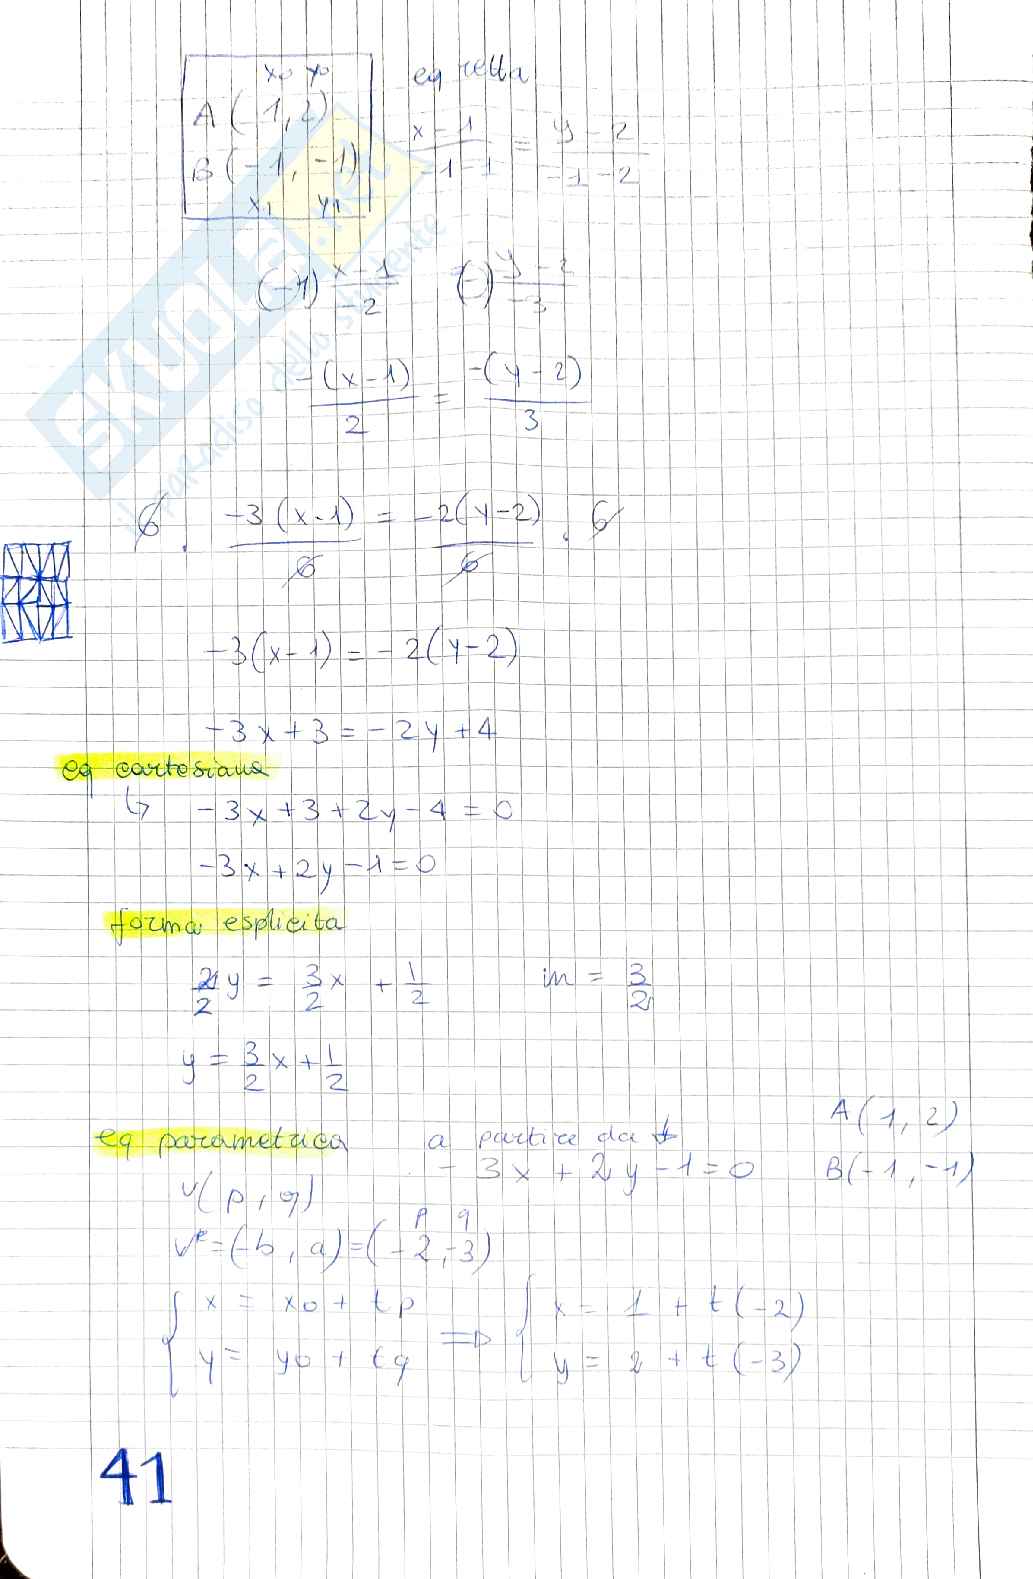 x0 y0
A(-1,2)
B(-1,-1)
x1 y1
eq retta
x-1/-1-1 = y-2/-1-2
(-1) x-1/-2 = (-1) y-2/-3
-(x-1)/2 = -(y-2)/3
6 · -3(x-1)/6 = -2(y-2)/6 · 6
-3(x-1) = -2(y-2)
-3x+3=-2y+4
eq cartesiana
↳ -3x+3+2y-4=0
-3x+2y-1=0
forma esplicita
2/2 y = 3/2 x + 1/2 m = 3/2
y = 3/2 x + 1/2
eq parametrica a partire da
-3x+2y-1=0
A(1,2)
B(-1,-1)
v(p,q)
p q
v=(-b,a)=(-2,-3)
{ x = x0 + tp
y = y0 + tq
⇒ { x = 1 + t(-2)
y = 2 + t(-3)
41
SKUOLA.net
il paradiso dello studente